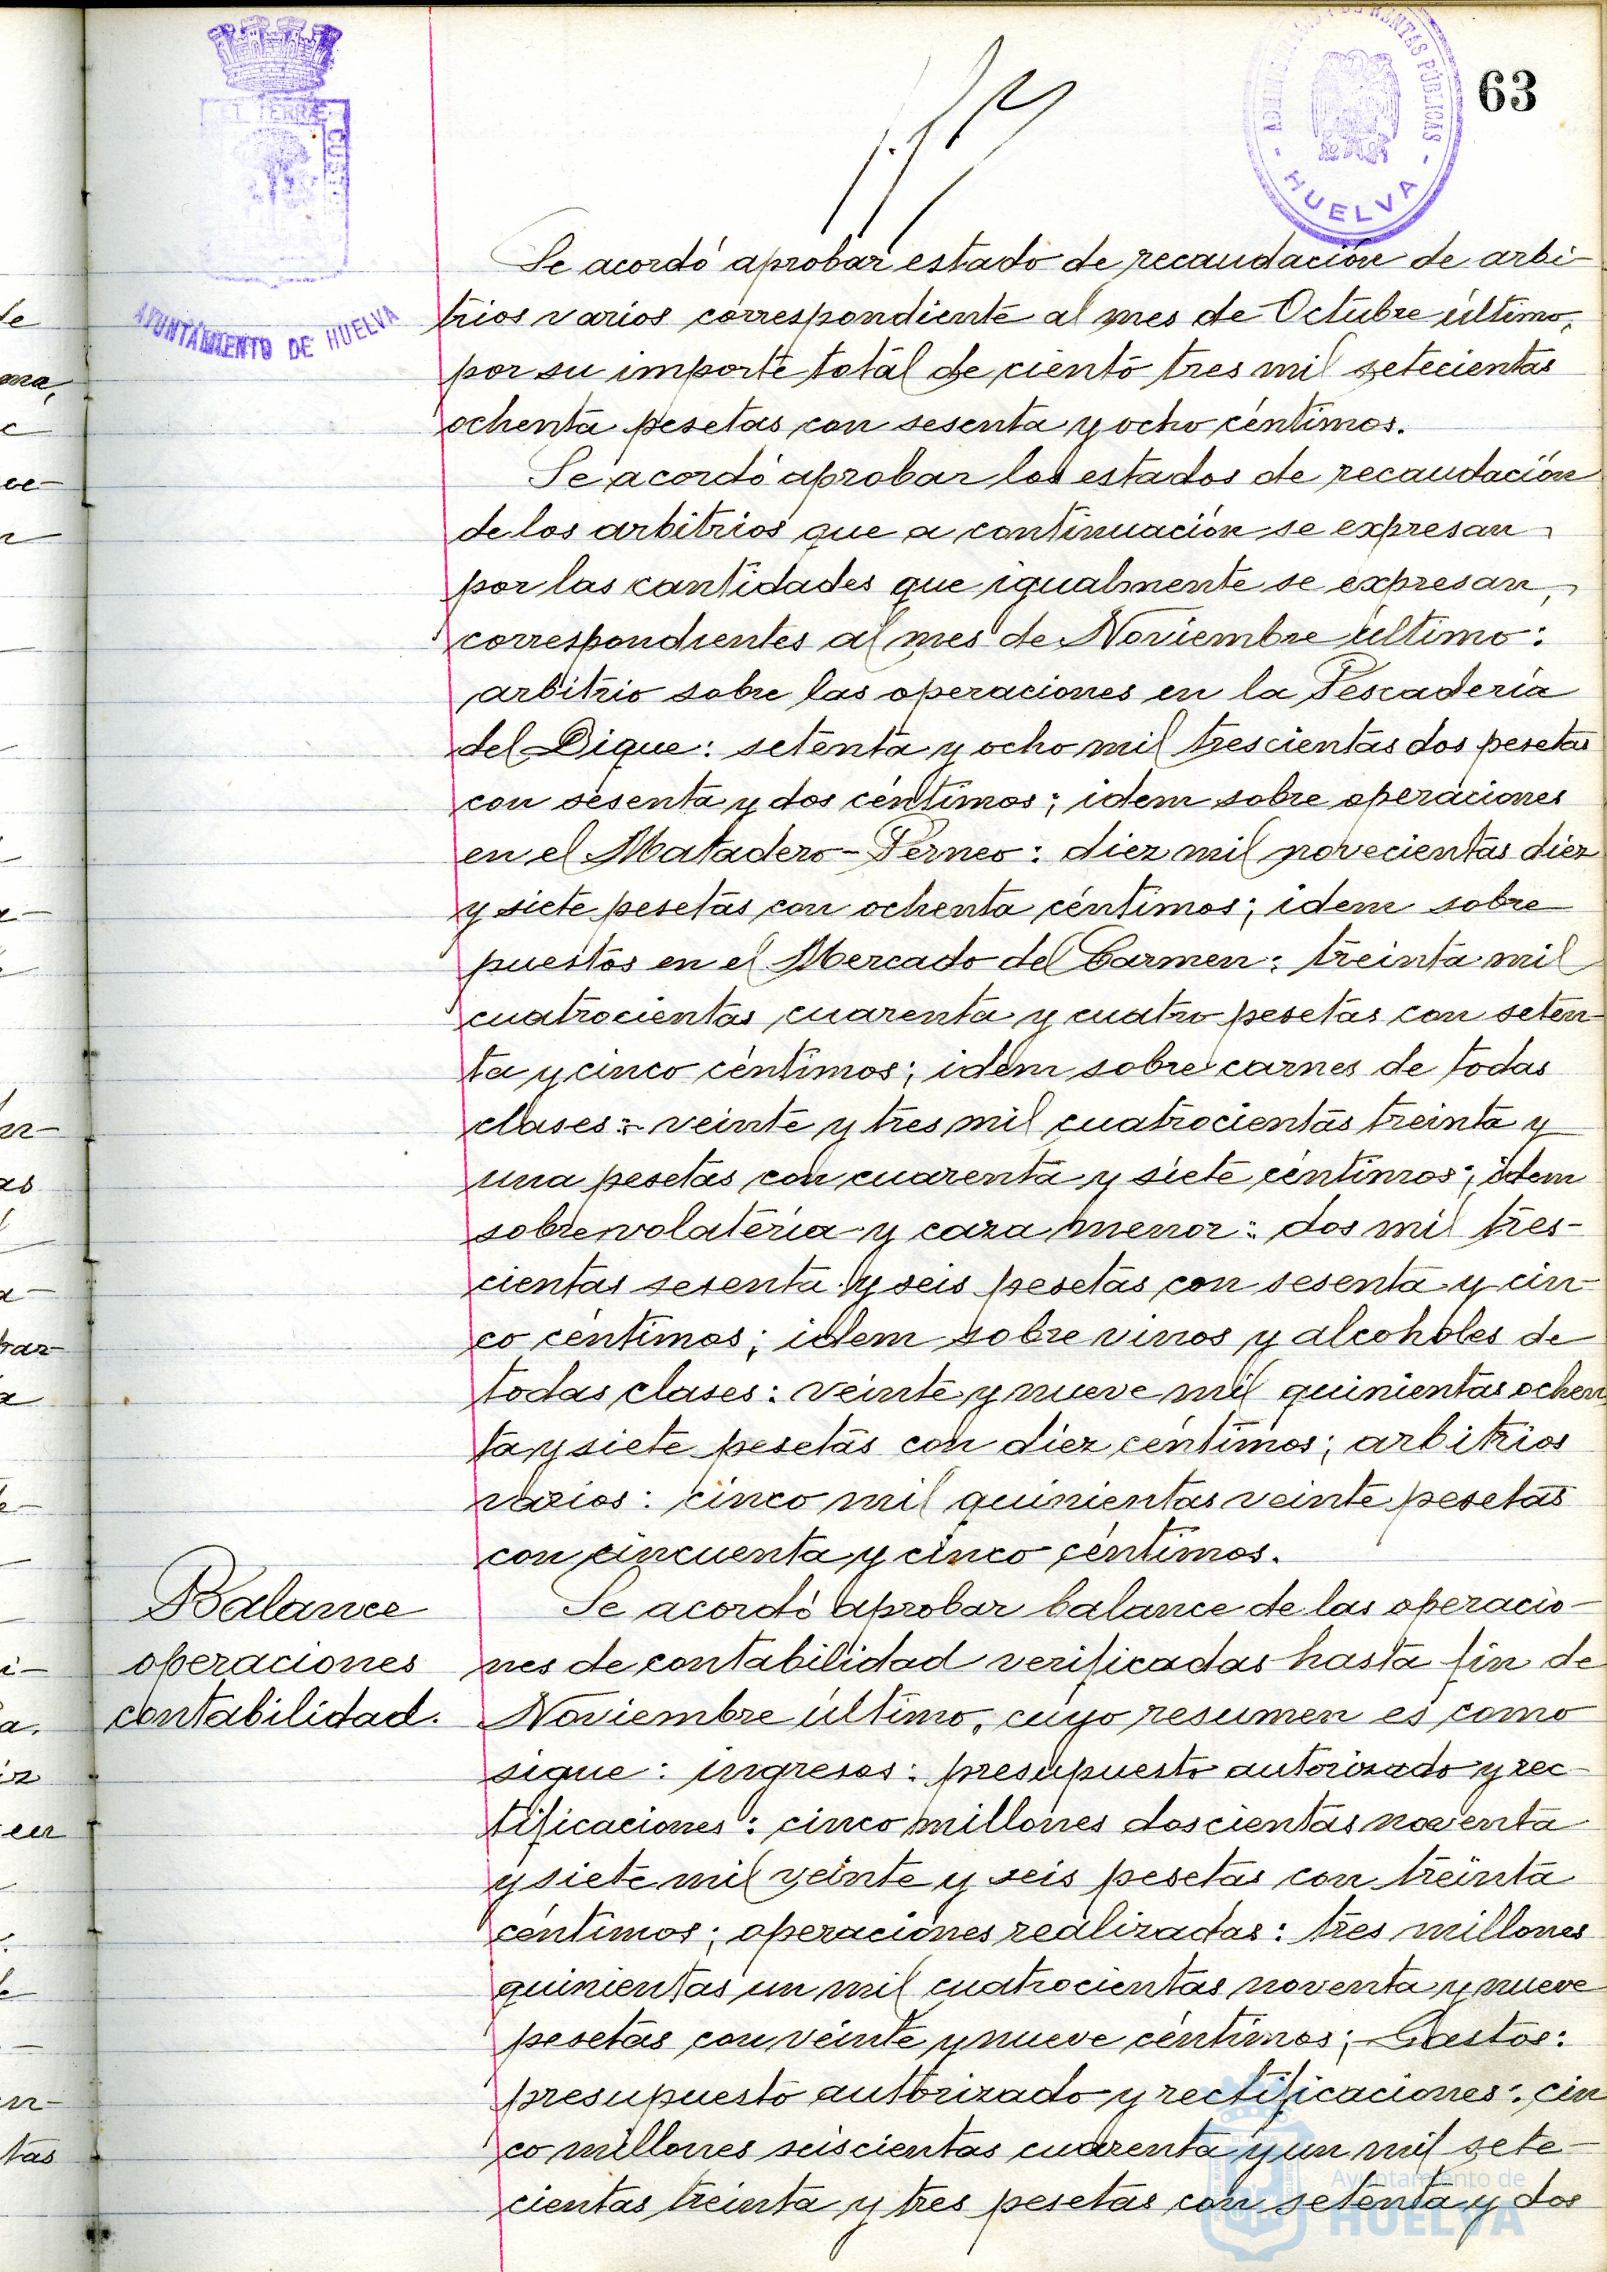 63
ET TERRÆ
CUSTO
AYUNTAMIENTO DE HUELVA
RENTAS PÚBLICAS
- HUELVA -
Se acordó aprobar estado de recaudación de arbi-
trios varios correspondiente al mes de Octubre último,
por su importe total de ciento tres mil setecientas
ochenta pesetas con sesenta y ocho céntimos.
Se acordó aprobar los estados de recaudación
de los arbitrios que a continuación se expresan
por las cantidades que igualmente se expresan,
correspondientes al mes de Noviembre último:
arbitrio sobre las operaciones en la Pescadería
del Dique: setenta y ocho mil trescientas dos pesetas
con sesenta y dos céntimos; idem sobre operaciones
en el Matadero-Perneo: diez mil novecientas diez
y siete pesetas con ochenta céntimos; idem sobre
puestos en el Mercado del Carmen: treinta mil
cuatrocientas cuarenta y cuatro pesetas con seten-
ta y cinco céntimos; idem sobre carnes de todas
clases: veinte y tres mil cuatrocientas treinta y
una pesetas con cuarenta y siete céntimos; idem
sobre volatería y caza menor: dos mil tres-
cientas sesenta y seis pesetas con sesenta y cin-
co céntimos; idem sobre vinos y alcoholes de
todas clases: veinte y nueve mil quinientas ochen
ta y siete pesetas con diez céntimos; arbitrios
varios: cinco mil quinientas veinte pesetas
con cincuenta y cinco céntimos.
Balance
operaciones
contabilidad.
Se acordó aprobar balance de las operacio-
nes de contabilidad verificadas hasta fin de
Noviembre último, cuyo resumen es como
sigue: ingresos: presupuesto autorizado y rec-
tificaciones: cinco millones doscientas noventa
y siete mil veinte y seis pesetas con treinta
céntimos; operaciones realizadas: tres millones
quinientas un mil cuatrocientas noventa y nueve
pesetas con veinte y nueve céntimos; Gastos:
presupuesto autorizado y rectificaciones: cin
co millones seiscientas cuarenta y un mil sete-
cientas treinta y tres pesetas con setenta y dos
Ayuntamiento de
HUELVA